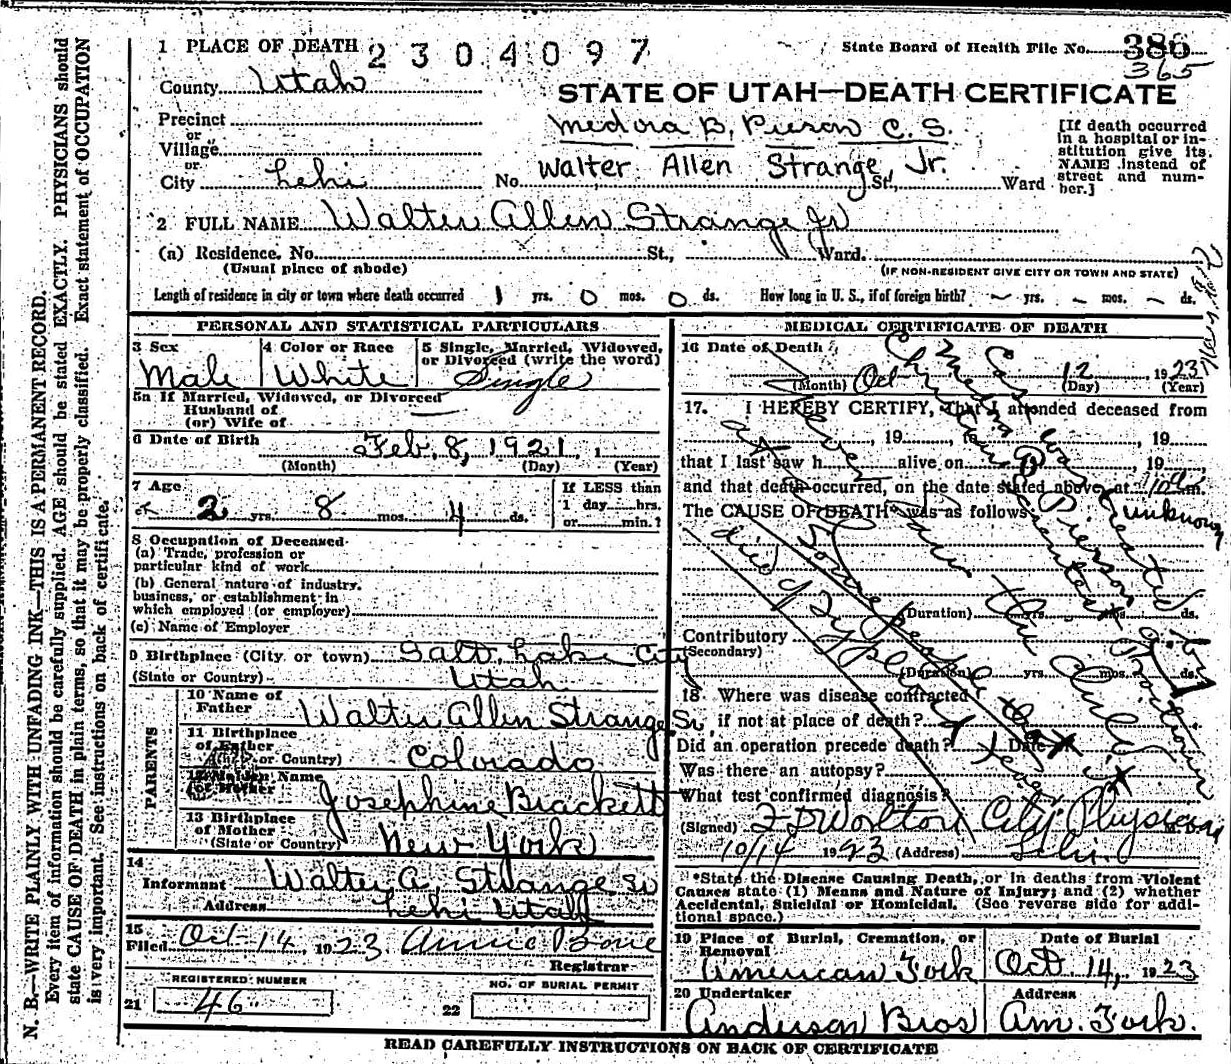 1 PLACE OF DEATH 2304097
State Board of Health File No. 386
365
County Utah
STATE OF UTAH—DEATH CERTIFICATE
Precinct
or
Village
or
City Lehi
Medora B. Pierson C. S.
No. Walter Allen Strange Jr. St., Ward
[If death occurred
in a hospital or in-
stitution give its
NAME instead of
street and num-
ber.]
2 FULL NAME Walter Allen Strange Jr
(a) Residence. No. St., Ward.
(Usual place of abode)
(IF NON-RESIDENT GIVE CITY OR TOWN AND STATE)
Length of residence in city or town where death occurred 1 yrs. 0 mos. 0 ds. How long in U. S., if of foreign birth? – yrs. – mos. – ds.
PERSONAL AND STATISTICAL PARTICULARS
3 Sex
Male
4 Color or Race
White
5 Single, Married, Widowed,
or Divorced (write the word)
Single
5a If Married, Widowed, or Divorced
Husband of
(or) Wife of
6 Date of Birth Feb. 8, 1921, 1
(Month) (Day) (Year)
7 Age
2 yrs. 8 mos. 4 ds.
If LESS than
1 day hrs.
or min.?
8 Occupation of Deceased
(a) Trade, profession or
particular kind of work
(b) General nature of industry,
business, or establishment in
which employed (or employer)
(c) Name of Employer
9 Birthplace (City or town) Salt Lake City
(State or Country) Utah
PARENTS
10 Name of
Father Walter Allen Strange Sr.
11 Birthplace
of Father
(State or Country) Colorado
12 Maiden Name
of Mother Josephine Brackett
13 Birthplace
of Mother
(State or Country) New York
14
Informant Walter A. Strange Sr
Address Lehi Utah
15
Filed Oct-14 1923 Annie Bone
Registrar
REGISTERED NUMBER
21 46
NO. OF BURIAL PERMIT
22
MEDICAL CERTIFICATE OF DEATH
16 Date of Death
Oct 12 1923
(Month) (Day) (Year)
17. I HEREBY CERTIFY, That I attended deceased from
, 19 , to , 19
that I last saw h alive on , 19 ,
and that death occurred, on the date stated above, at 10 a m.
The CAUSE OF DEATH* was as follows: unknown
Case was treated by
Medora B Pierson a
Christian Scientist Practitioner
I never saw the child
at
Some people say that it
died of Typhoid fever
(Duration) yrs. mos. ds.
Contributory
(Secondary)
(Duration) yrs. mos. ds.
18 Where was disease contracted
if not at place of death?
Did an operation precede death? Date
Was there an autopsy?
What test confirmed diagnosis?
(Signed) F D Worlton City Physician M. D.
10/14 1923 (Address) Lehi
*State the Disease Causing Death, or in deaths from Violent
Causes state (1) Means and Nature of Injury; and (2) whether
Accidental, Suicidal or Homicidal. (See reverse side for addi-
tional space.)
19 Place of Burial, Cremation, or
Removal
American Fork
Date of Burial
Oct 14, 1923
20 Undertaker
Anderson Bros
Address
Am. Fork.
READ CAREFULLY INSTRUCTIONS ON BACK OF CERTIFICATE
N. B.—WRITE PLAINLY WITH UNFADING INK—THIS IS A PERMANENT RECORD.
Every item of information should be carefully supplied. AGE should be stated EXACTLY. PHYSICIANS should
state CAUSE OF DEATH in plain terms, so that it may be properly classified. Exact statement of OCCUPATION
is very important. See instructions on back of certificate.